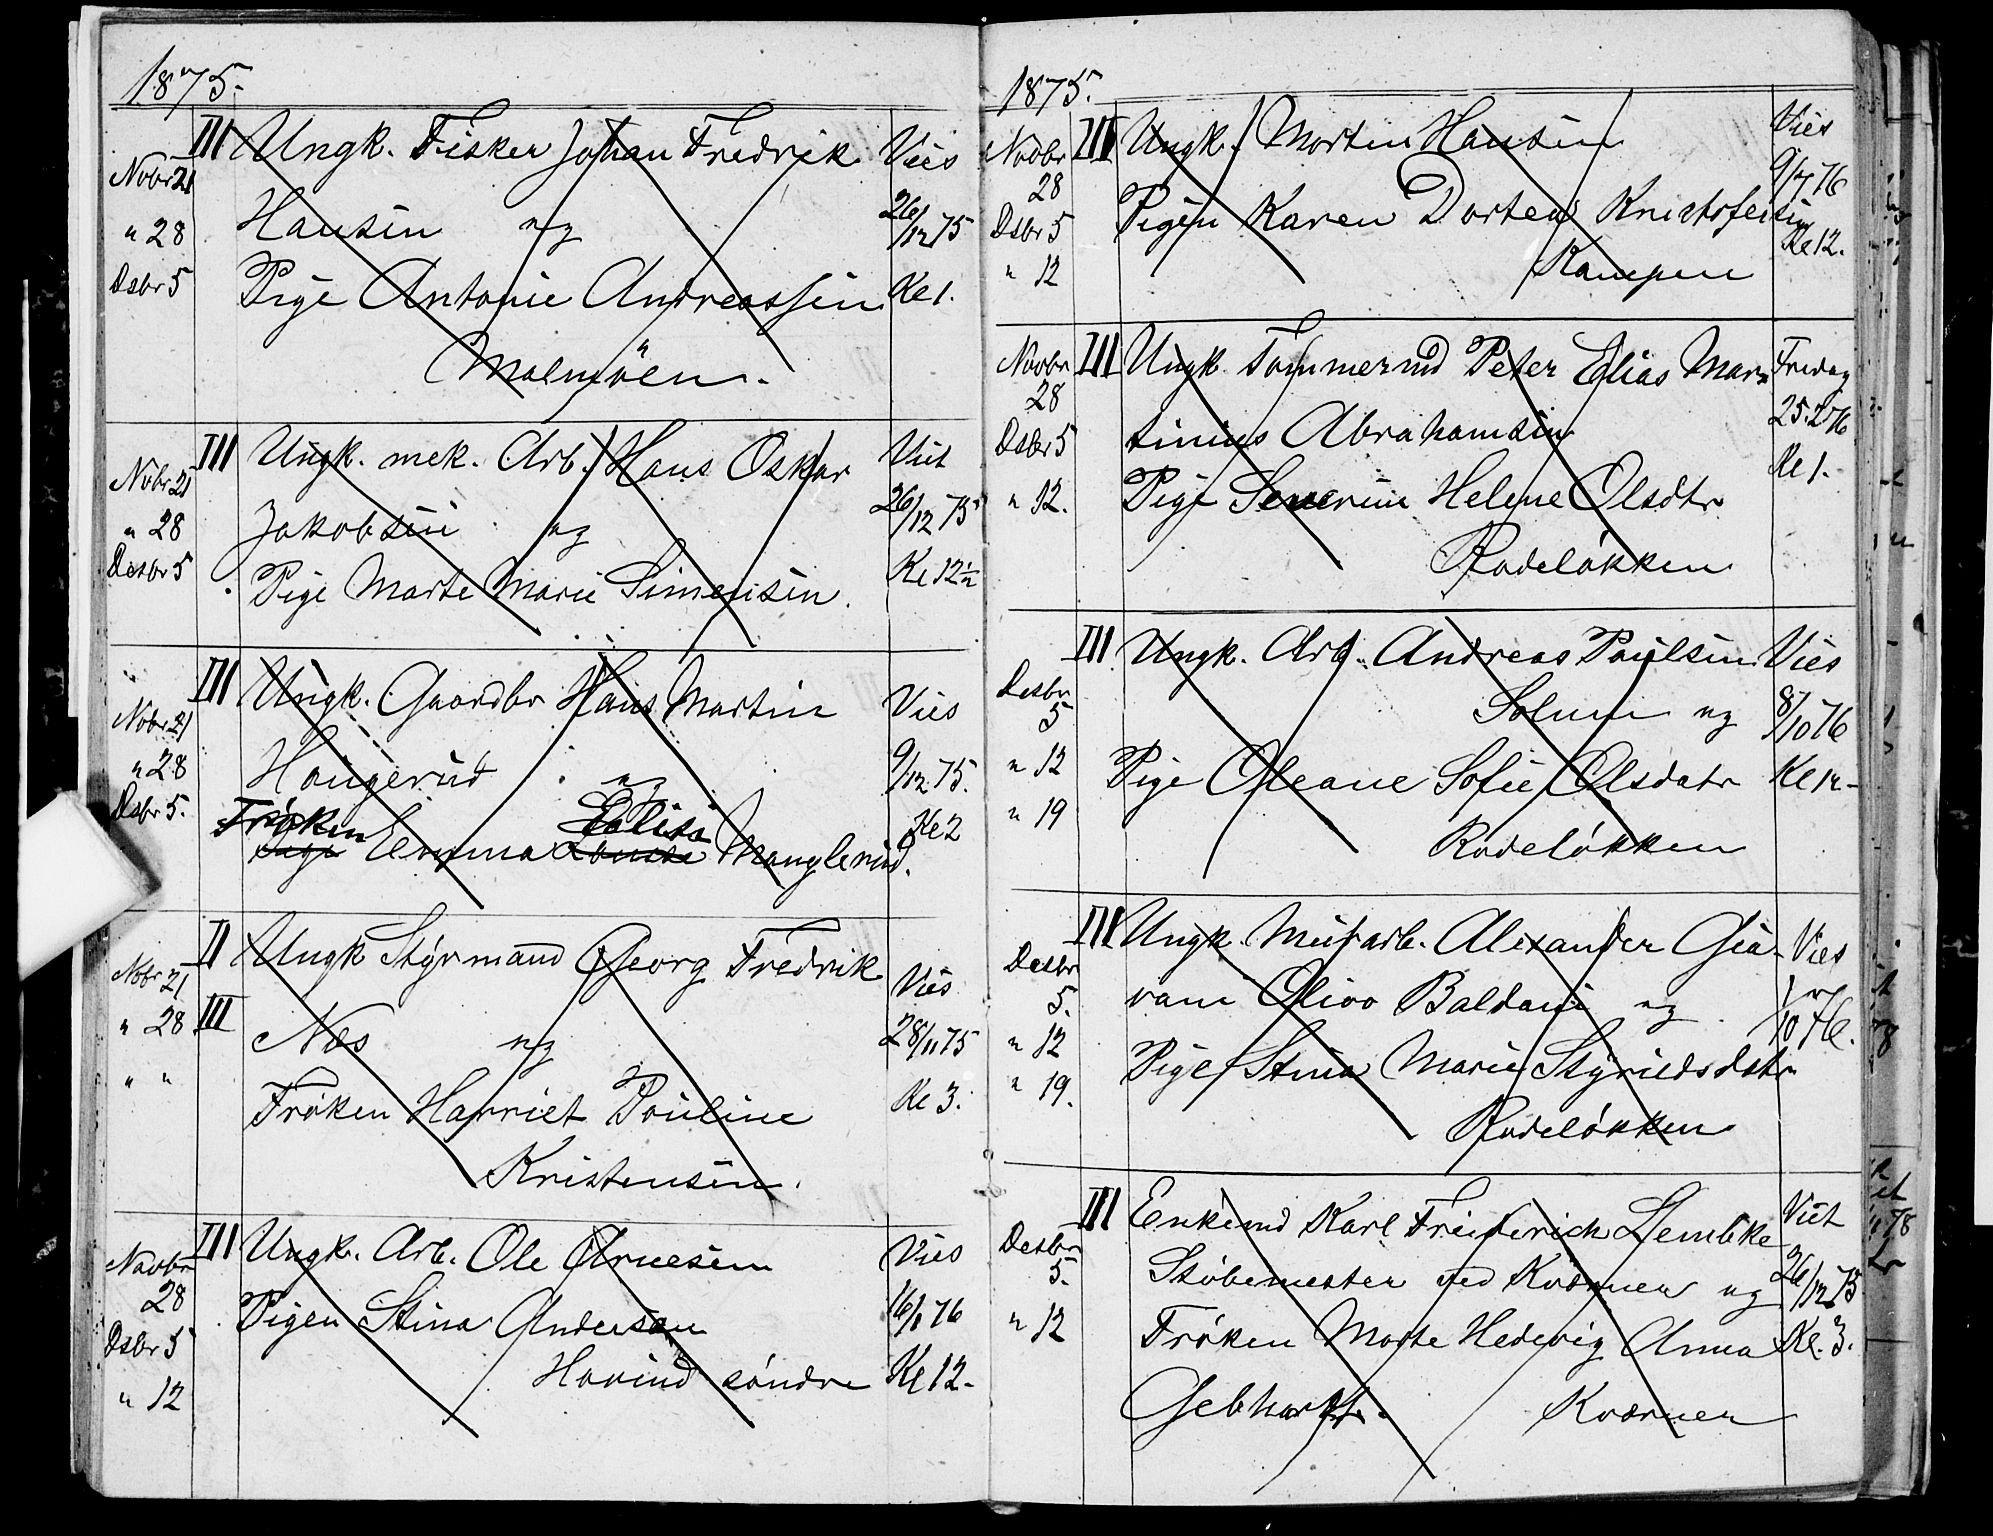 1875.
III Ungk. Fisker Johan Fredrik Vies
Nobr 21
Hansen og 26/12 75
" 28
Dsbr 5 Pige Antonie Andreassen Kl 1.
Malmöen.
III Ungk. mek. Arb. Hans Oskar Viet
Nobr 21 26/12 75
" 28 Jakobsen og
Desbr 5 Pige Marte Marie Simensen. Kl 12½
III Ungk. Gaardbr Hans Martin Vies
Nobr 21
" 28 Haugerud og 9/12 75.
Dsbr 5. Frøken Elise Kl 2
Pige Emma Louise Manglerud.
II Ungk Styrmand Georg Fredrik
Nobr 21 Vies
" 28 III Næs og 28/11 75
" " Frøken Harriet Pouline Kl 3.
Kristensen.
III Ungk. Arb. Ole Arnesen Vies
Novbr
28 Pigen Stina Anderson 16/1 76
Dsbr 5 Hovind söndre Kl 12-
" 12
1875.
III Ungk. Morten Hansen Vies
Novbr 9/7 76
28
Dsbr 5 Pigen Karen Dortea Kristofersen
" 12 Kampen Kl 12.
Novbr III Ungk. Tømmermd Peter Elias Mar- Fredag
28 25.2 76
Dsbr 5 tinius Abrahamsen Kl 1.
" 12. Pige Severine Helene Olsdtr
Rodeløkken
III Ungk. Arb. Andreas Paulsen Vies
Desbr
5 Solum og 8/10 76
" 12 Pige Oleane Sofie Olsdatr Kl 12-
" 19 Rodeløkken
III Ungk. Alexander Gio- Vies
Desbr
5. vani Olivo Baldani og
" 12 /10 76.
" 19. Pige Stina Marie
Rodeløkken
III Enkemd Karl Freiderich Lembke Viet
Desbr
5. Støbemester ved Kværner og 26/12 75
" 12 Frøken Marte Hedevig Anna Kl. 3.
Gebhardt. Kværner